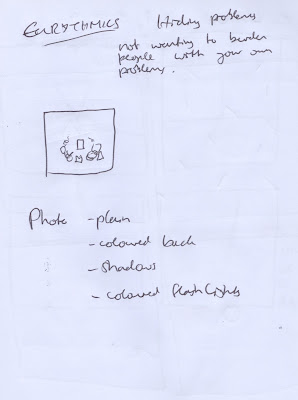 EURYTHMICS
Hiding problems
not wanting to burden
people with your own
problems.
Photo - plain
- coloured back
- shadows
- coloured flashlights